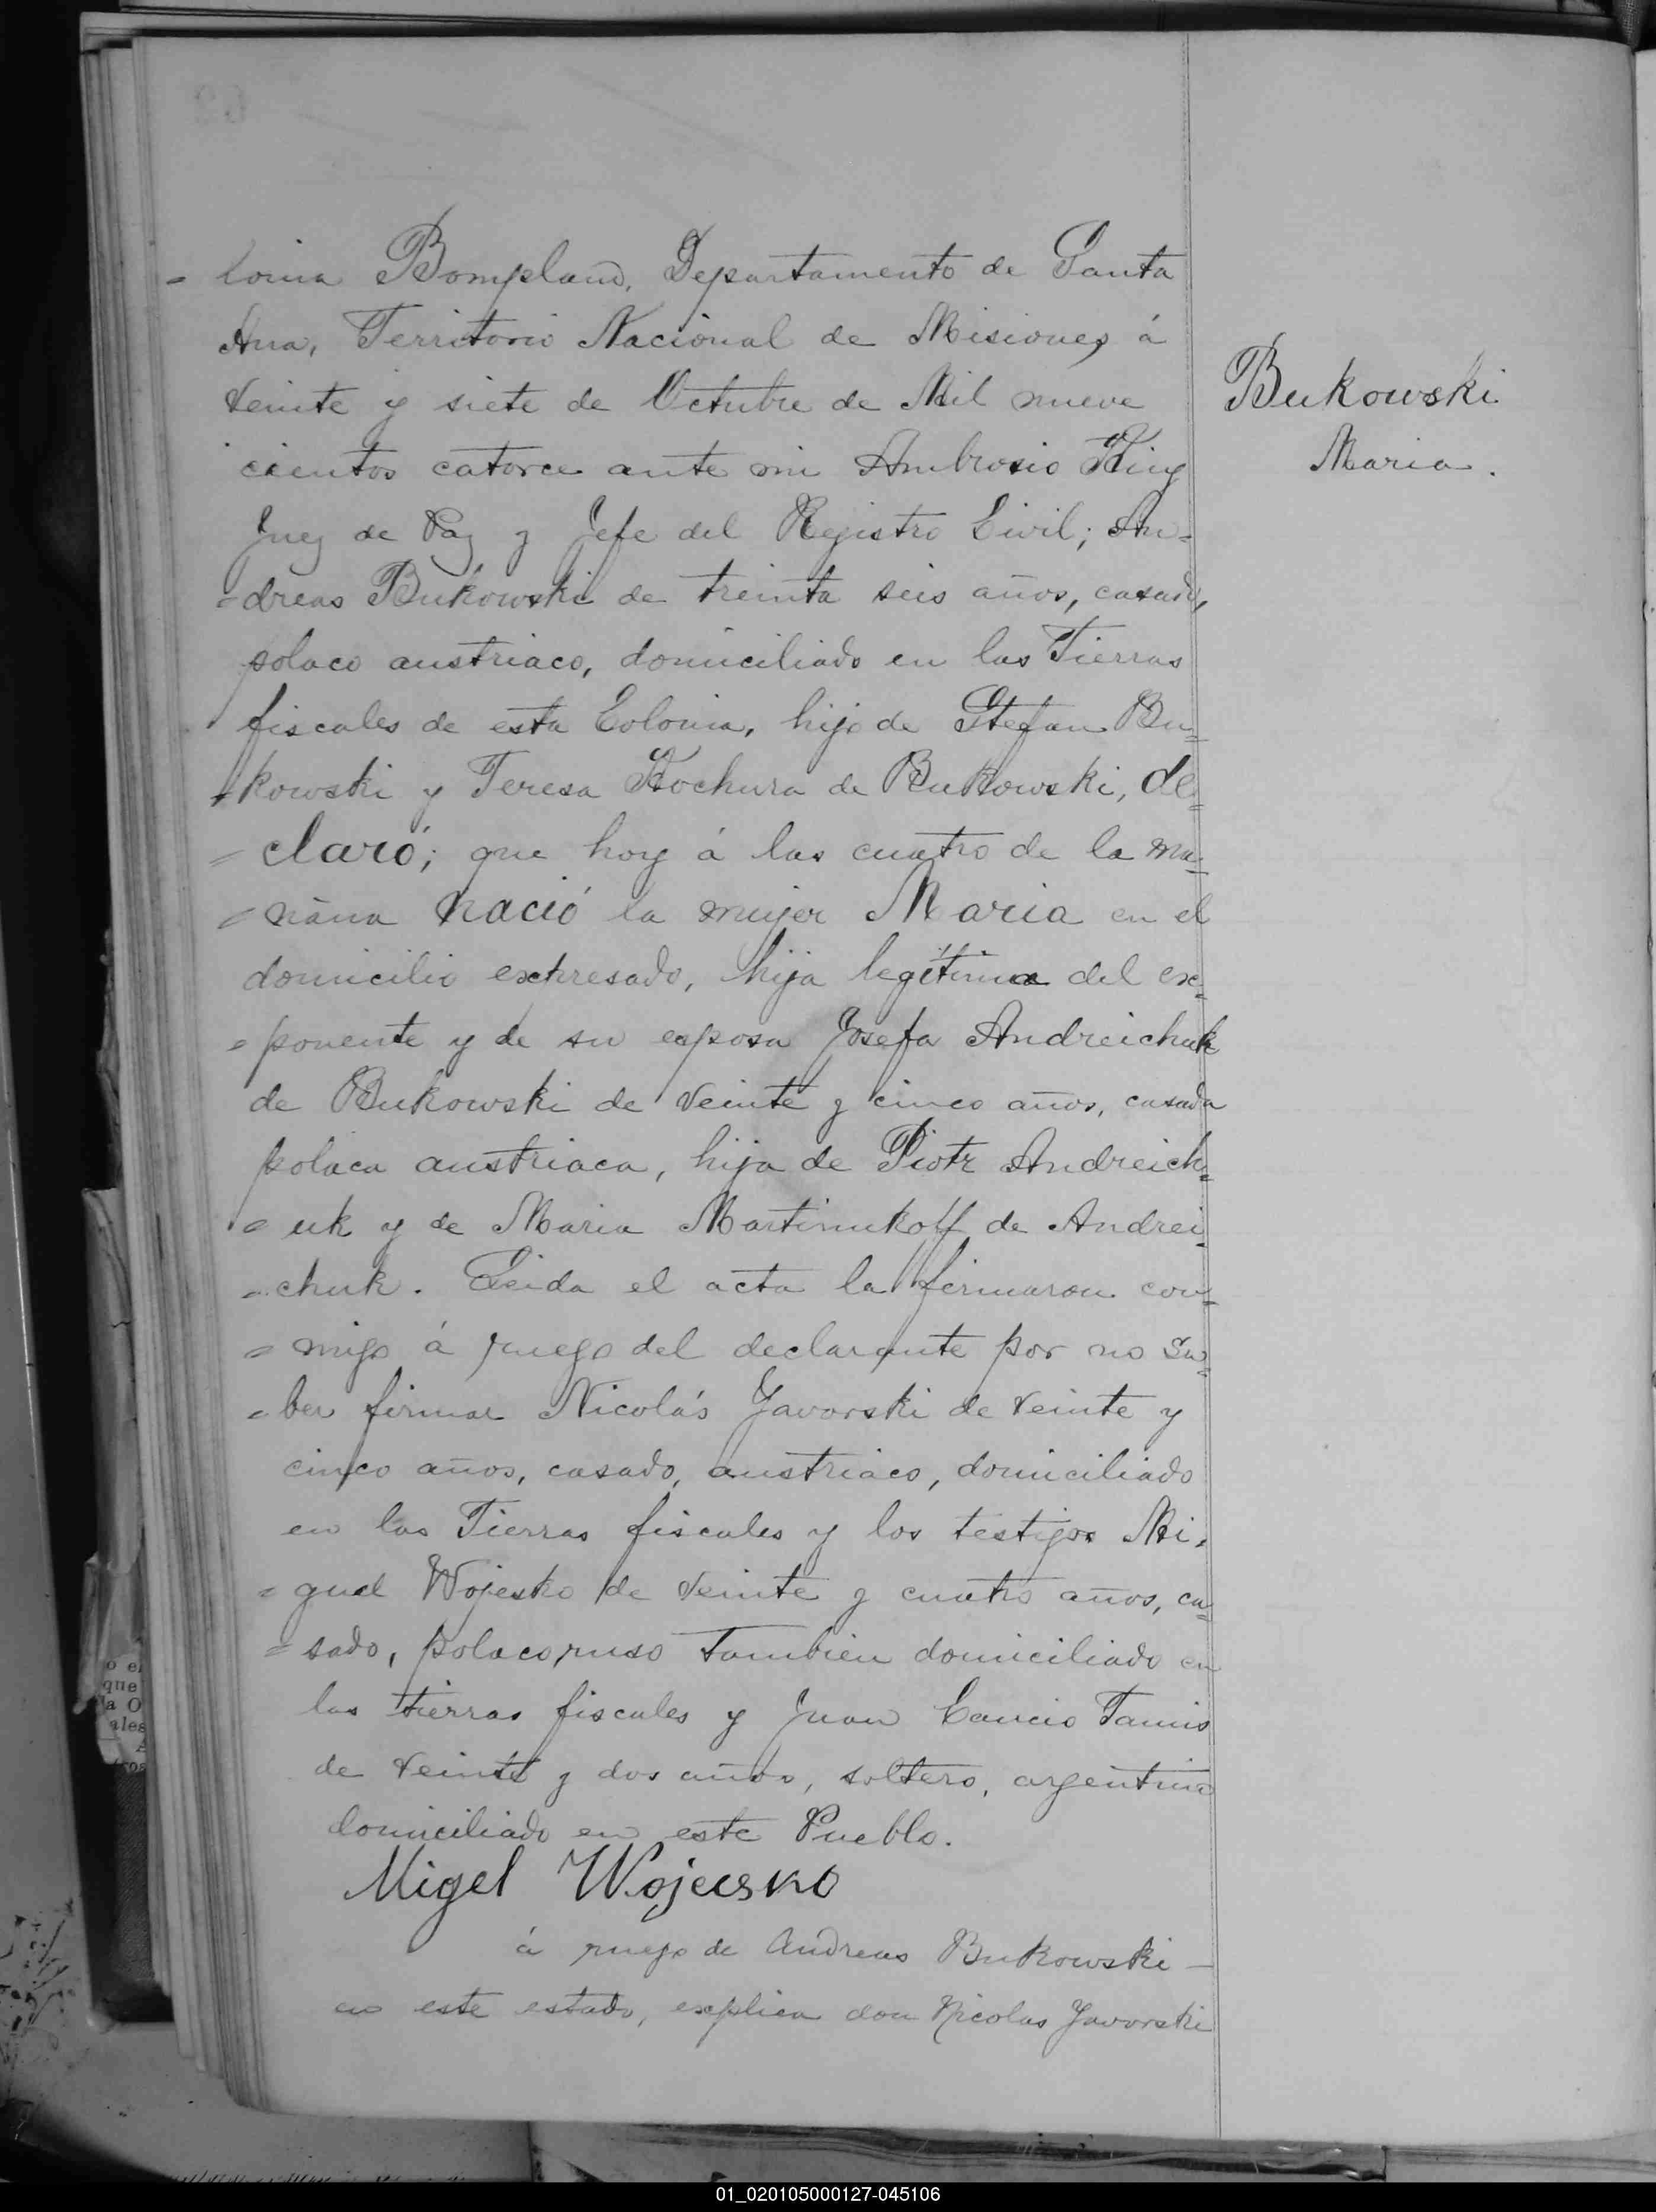 = lonia Bompland, Departamento de Santa
Ana, Territorio Nacional de Misiones á
veinte y siete de Octubre de Mil nueve
cientos catorce ante mi Ambrosio King
Juez de Paz y Jefe del Registro Civil; An=
=dreas Bukowski de treinta seis años, casado,
polaco austriaco, domiciliado en las Tierras
fiscales de esta Colonia, hijo de Stefan Bu=
=kowski y Teresa Kochura de Bukowski, de=
=claró; que hoy á las cuatro de la ma=
=ñana nació la mujer Maria en el
domicilio expresado, hija legítima del ex=
=ponente y de su esposa Josefa Andreichuk
de Bukowski de veinte y cinco años, casada
polaca austriaca, hija de Piotr Andreich=
=uk y de Maria Martinukoff de Andrei=
=chuk. Leida el acta la firmaron con=
=migo á ruego del declarante por no sa=
=ber firmar Nicolás Javorski de veinte y
cinco años, casado, austriaco, domiciliado
en las Tierras fiscales y los testigos Mi=
=guel Wojesko de veinte y cuatro años, ca=
=sado, polaco, ruso tambien domiciliado en
las tierras fiscales y Juan Cancio
de veinte y dos años, soltero, argentino
domiciliado en este Pueblo.
Migel Wojecsko
á ruego de Andreas Bukowski —
en este estado, explica don Nicolas Javorski
Bukowski
Maria.
o el
que
a O
ales
01_020105000127-045106